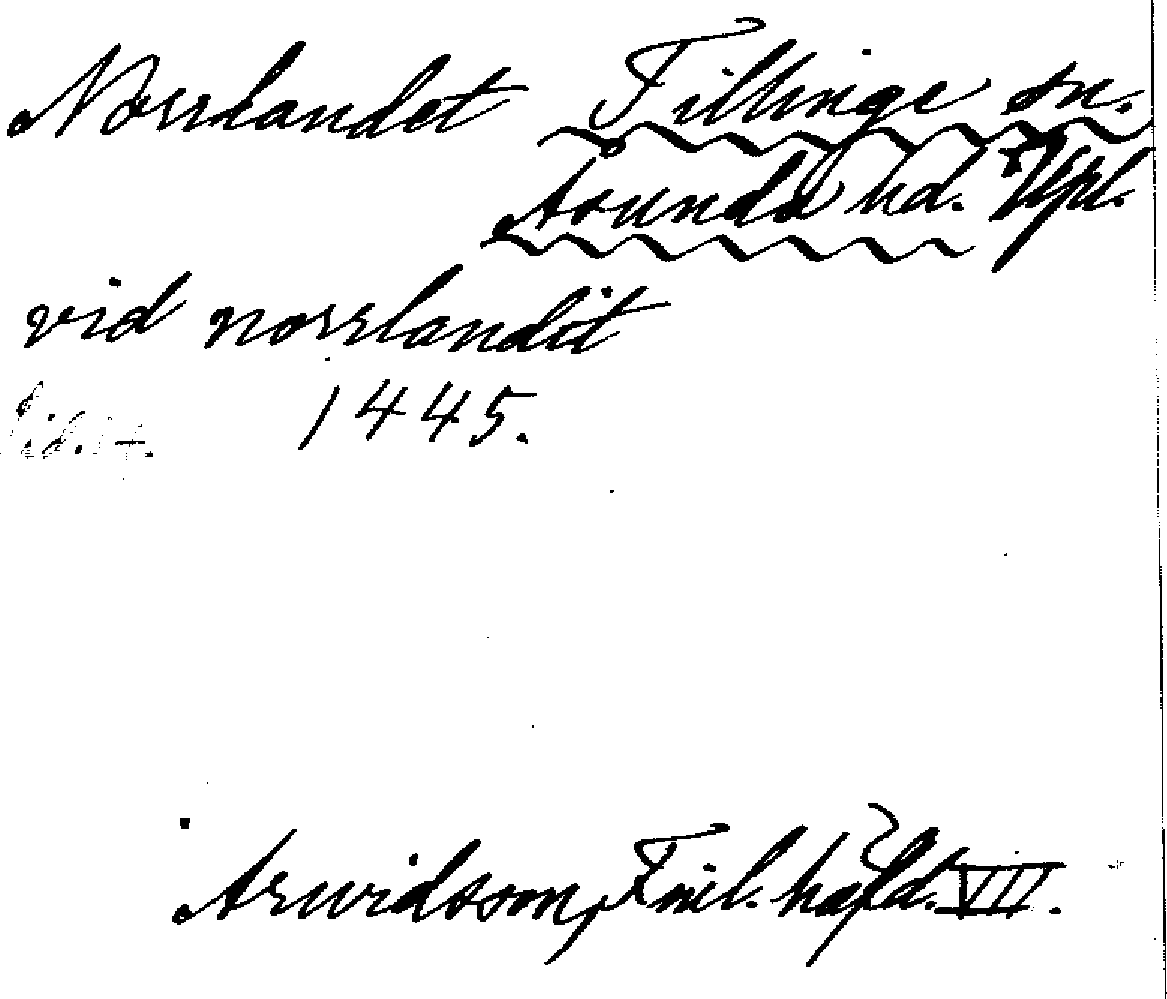 Norrlandet Tillinge sn.
Åsunda hd. Upl.
vid norrlandit
1445.
Arwidsson, Finl. häfd. VII.